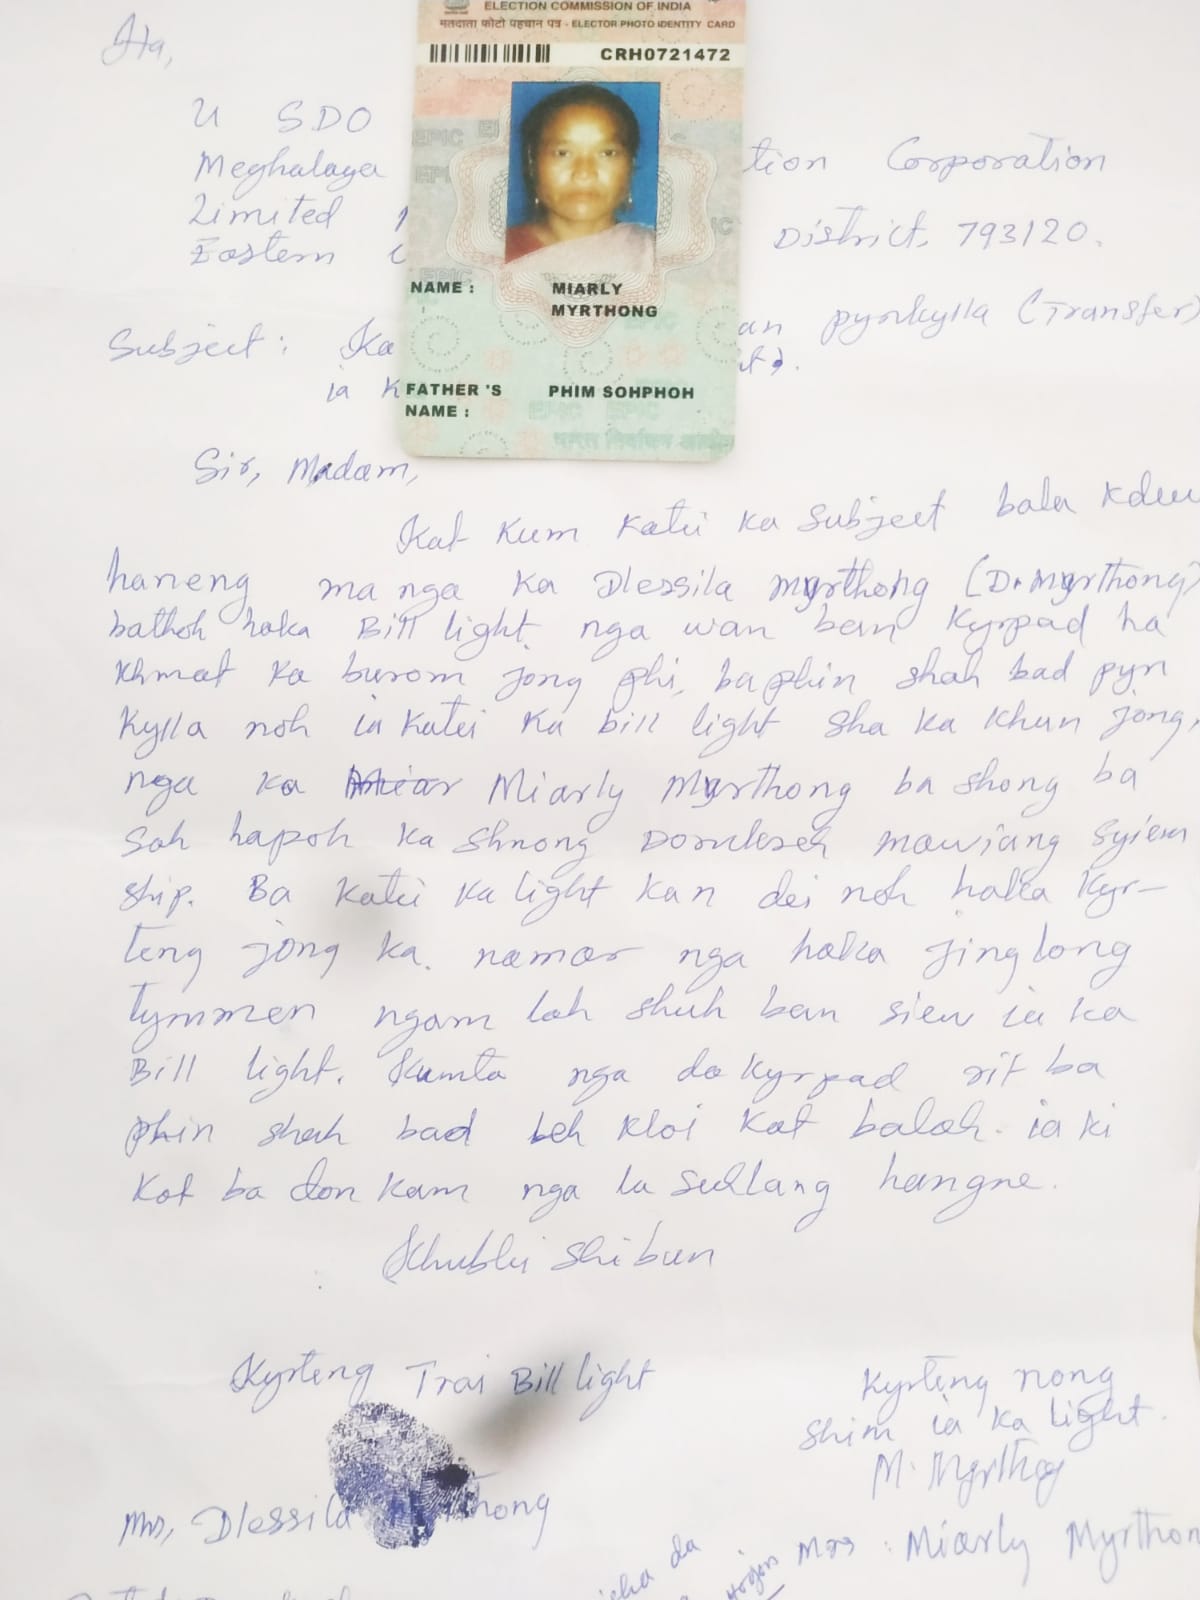 Ha,
ELECTION COMMISSION OF INDIA
मतदाता फोटो पहचान पत्र - ELECTOR PHOTO IDENTITY CARD
CRH0721472
U SDO
Meghalaya tion Corporation
Limited
Eastern District, 793120.
NAME : MIARLY
MYRTHONG
Subject : Ka an pynkylla (Transfer)
ia K
FATHER 'S NAME : PHIM SOHPHOH
Sir, Madam,
Kat kum katei ka subject bala kdew
haneng ma nga ka Dlessila Myrthong (D. Myrthong)
bathoh haka Bill light nga wan ban kyrpad ha
khmat ka burom jong phi, ba phin shah bad pyn
kylla noh ia katei ka bill light sha ka khun jong,
nga ka Miar Miarly Myrthong ba shong ba
sah hapoh ka shnong mawiang syiem
ship. Ba katei ka light kan dei noh haka kyr-
teng jong ka. namar nga haka jinglong
tymmen ngam lah shuh ban siew ia ka
Bill light. Kumta nga da kyrpad rit ba
phin shah bad leh kloi kat balah. ia ki
kot ba don kam nga la sullang hangne.
Khublei shibun
Kyrteng Trai Bill light
Kyrteng nong
shim ia ka light.
M. Myrthog
Mrs, Dlessila
Mrs : Miarly Myrthon